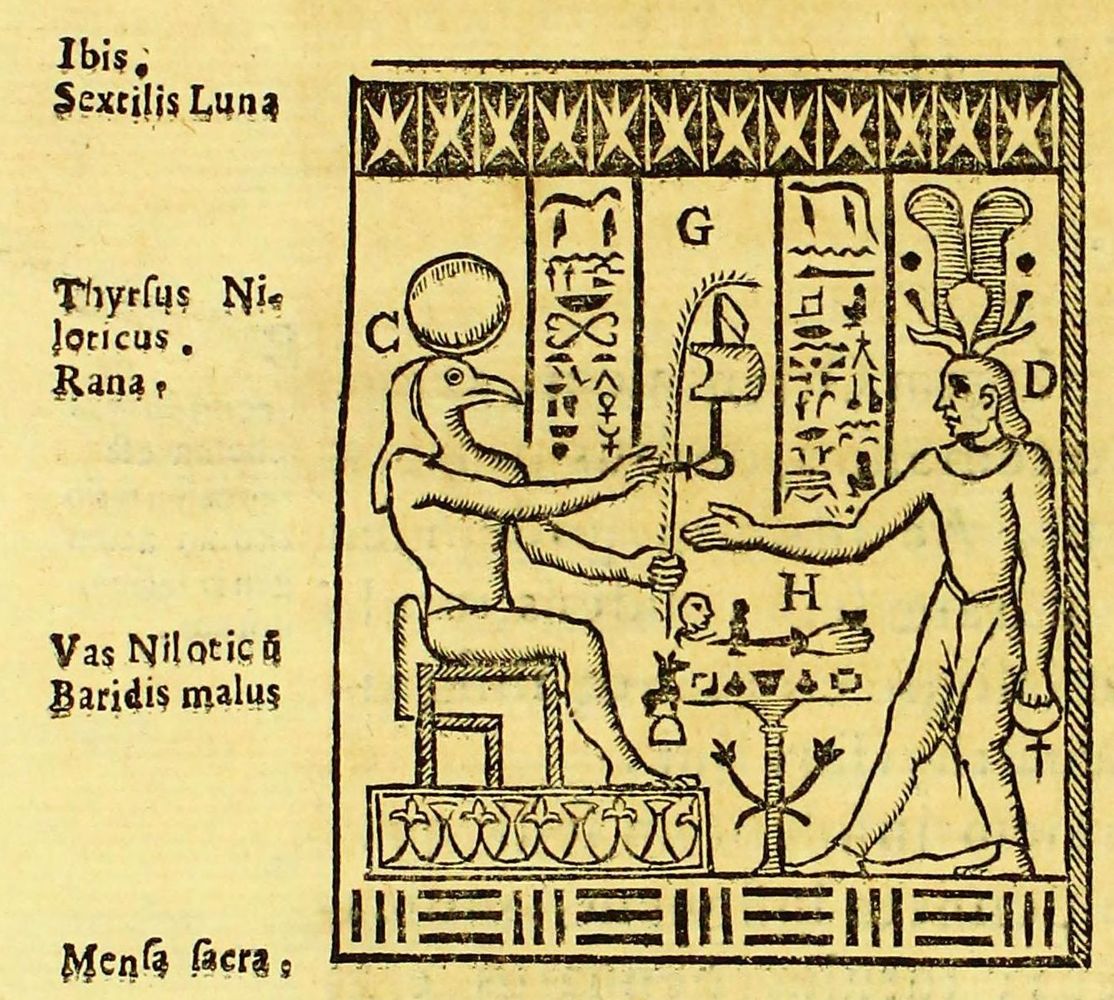 Ibis.
Sextilis Luna
G
C
Thyrſus Ni-
loticus.
Rana.
D
H
Vas Niloticū
Baridis malus
Menſa ſacra.